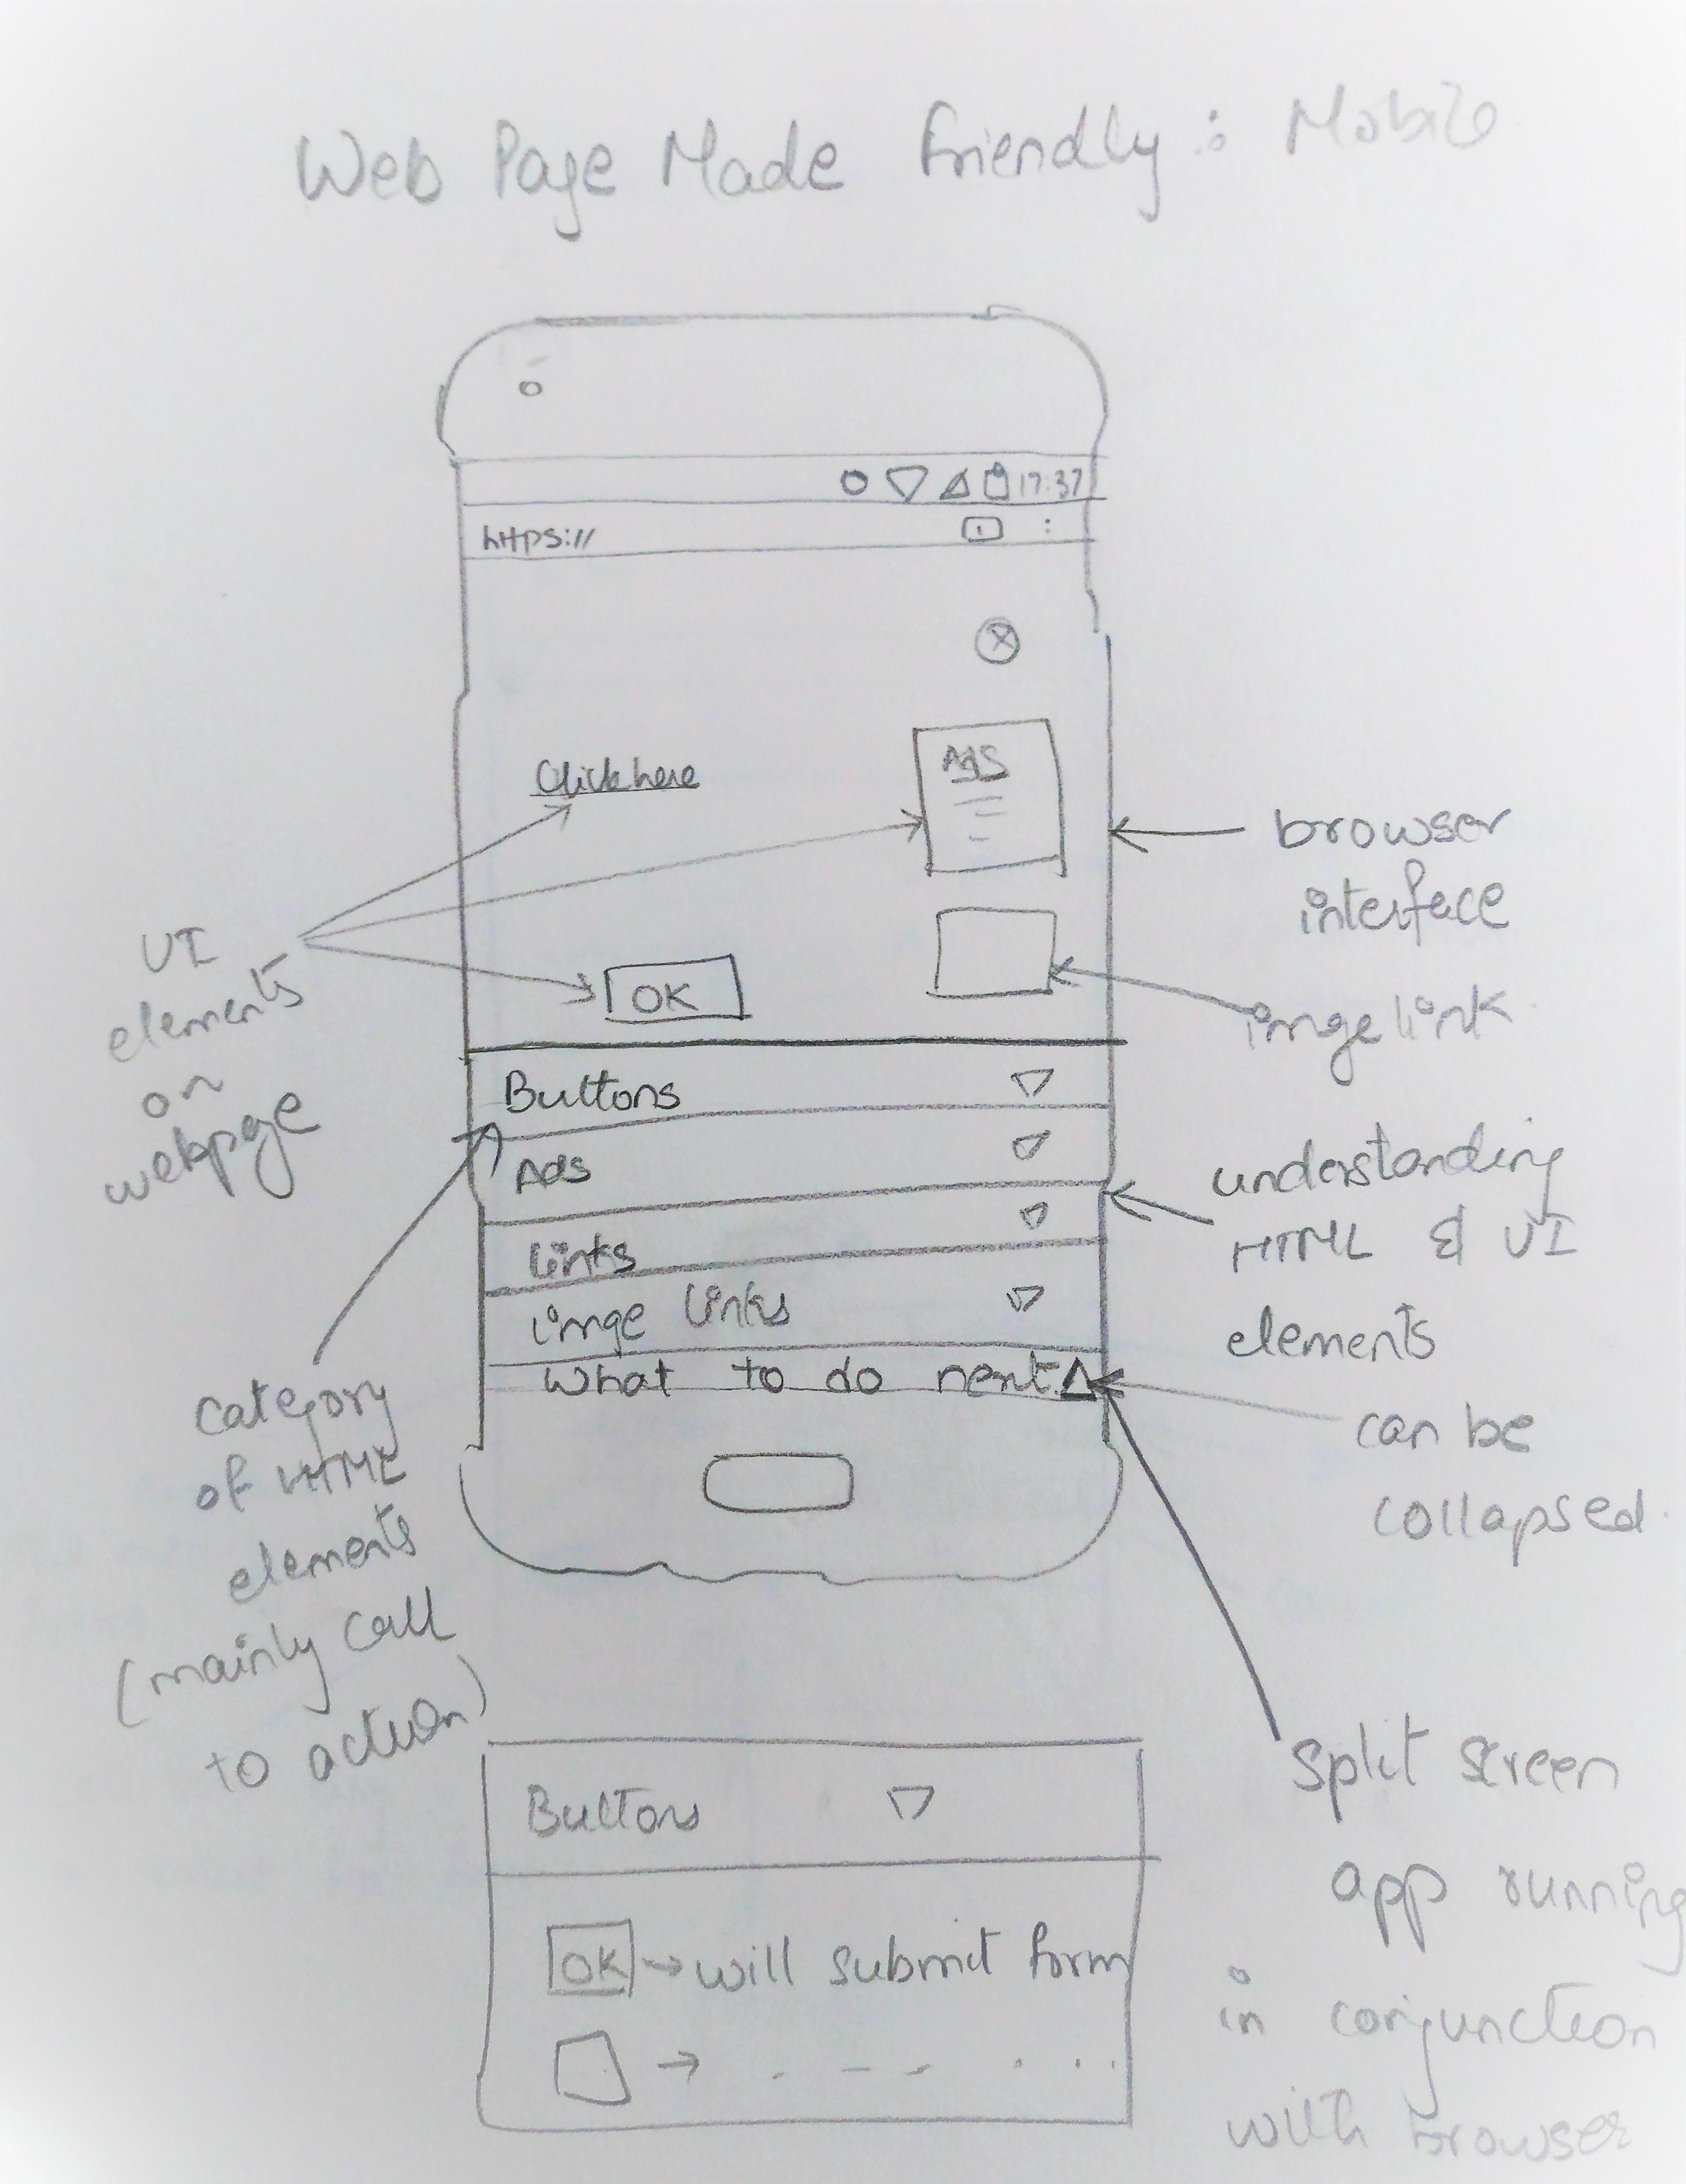 Web Page Made Friendly : Mobile
17:37
https://
Click here
Ads
OK
browser
interface
imge link
UI
elements
on
webpge
Buttons
Ads
Links
imge links
What to do next
understanding
HTML & UI
elements
can be
collapsed.
category
of HTML
elements
(mainly call
to action)
Split screen
app running
in conjunction
with browser
Buttons
OK → will submit form
→ . – – . . . .